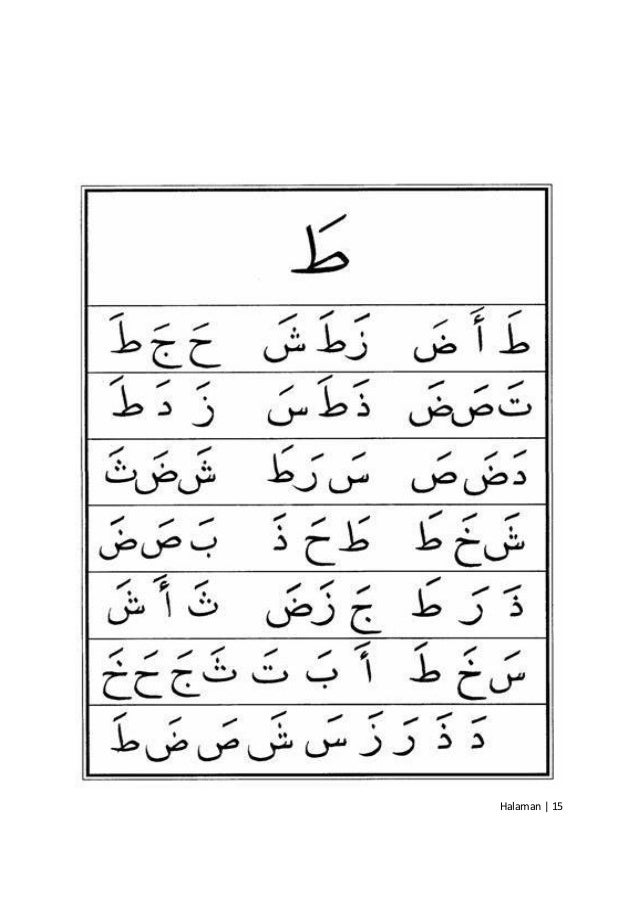 طَ
طَ أَ ضَ زَ طَ شَ حَ جَ طَ
تَ صَ ضَ ذَ طَ سَ زَ دَ طَ
دَ ضَ صَ سَ رَ طَ شَ ضَ ثَ
شَ خَ طَ طَ حَ ذَ بَ صَ ضَ
ذَ رَ طَ جَ زَ ضَ ثَ أَ شَ
سَ خَ طَ أَ بَ تَ ثَ جَ حَ خَ
دَ ذَ رَ زَ سَ شَ صَ ضَ طَ
Halaman | 15